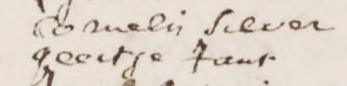 Cornelis Silver
Geertje Jans